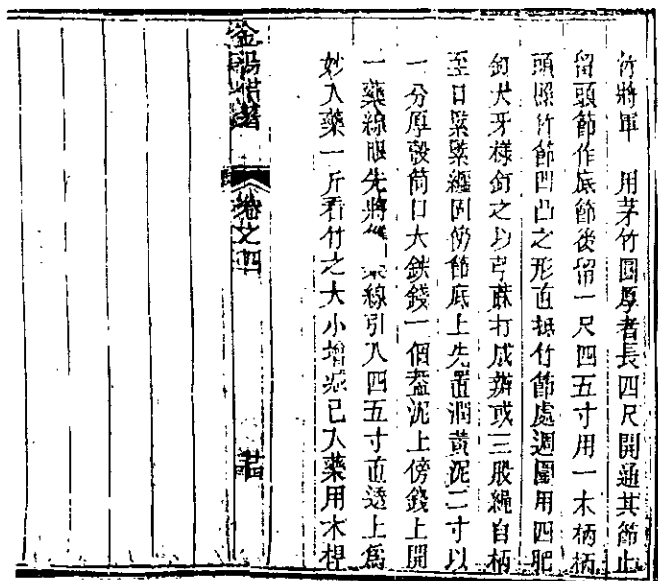 竹將軍　用茅竹圓厚者長四尺開通其節止
留頭節作底節後留一尺四五寸用一木柄柄
頭照竹節凹凸之形直抵竹節處週圍用四肥
釘犬牙樣釘之以苧蔴打成辮或三股繩自柄
至口緊緊纏固傍節底上先置潤黃泥二寸以
一分厚瑴筒口大鉄錢一個蓋泥上傍錢上開
一藥線眼先將　藥線引入四五寸直透上爲
妙入藥一斤看竹之大小增減已入藥用木桿
金湯借箸
卷之四